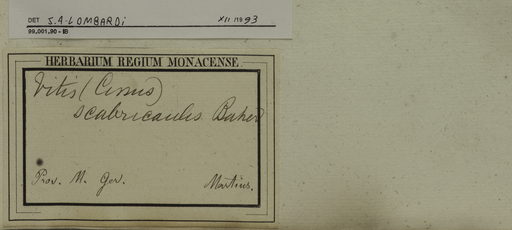 DET S.A. LOMBARDI XII 1993
99.001.90 - IB
HERBARIUM REGIUM MONACENSE.
Vitis (Cissus)
scabricaulis Baker
Prov. M. Ger. Martius.